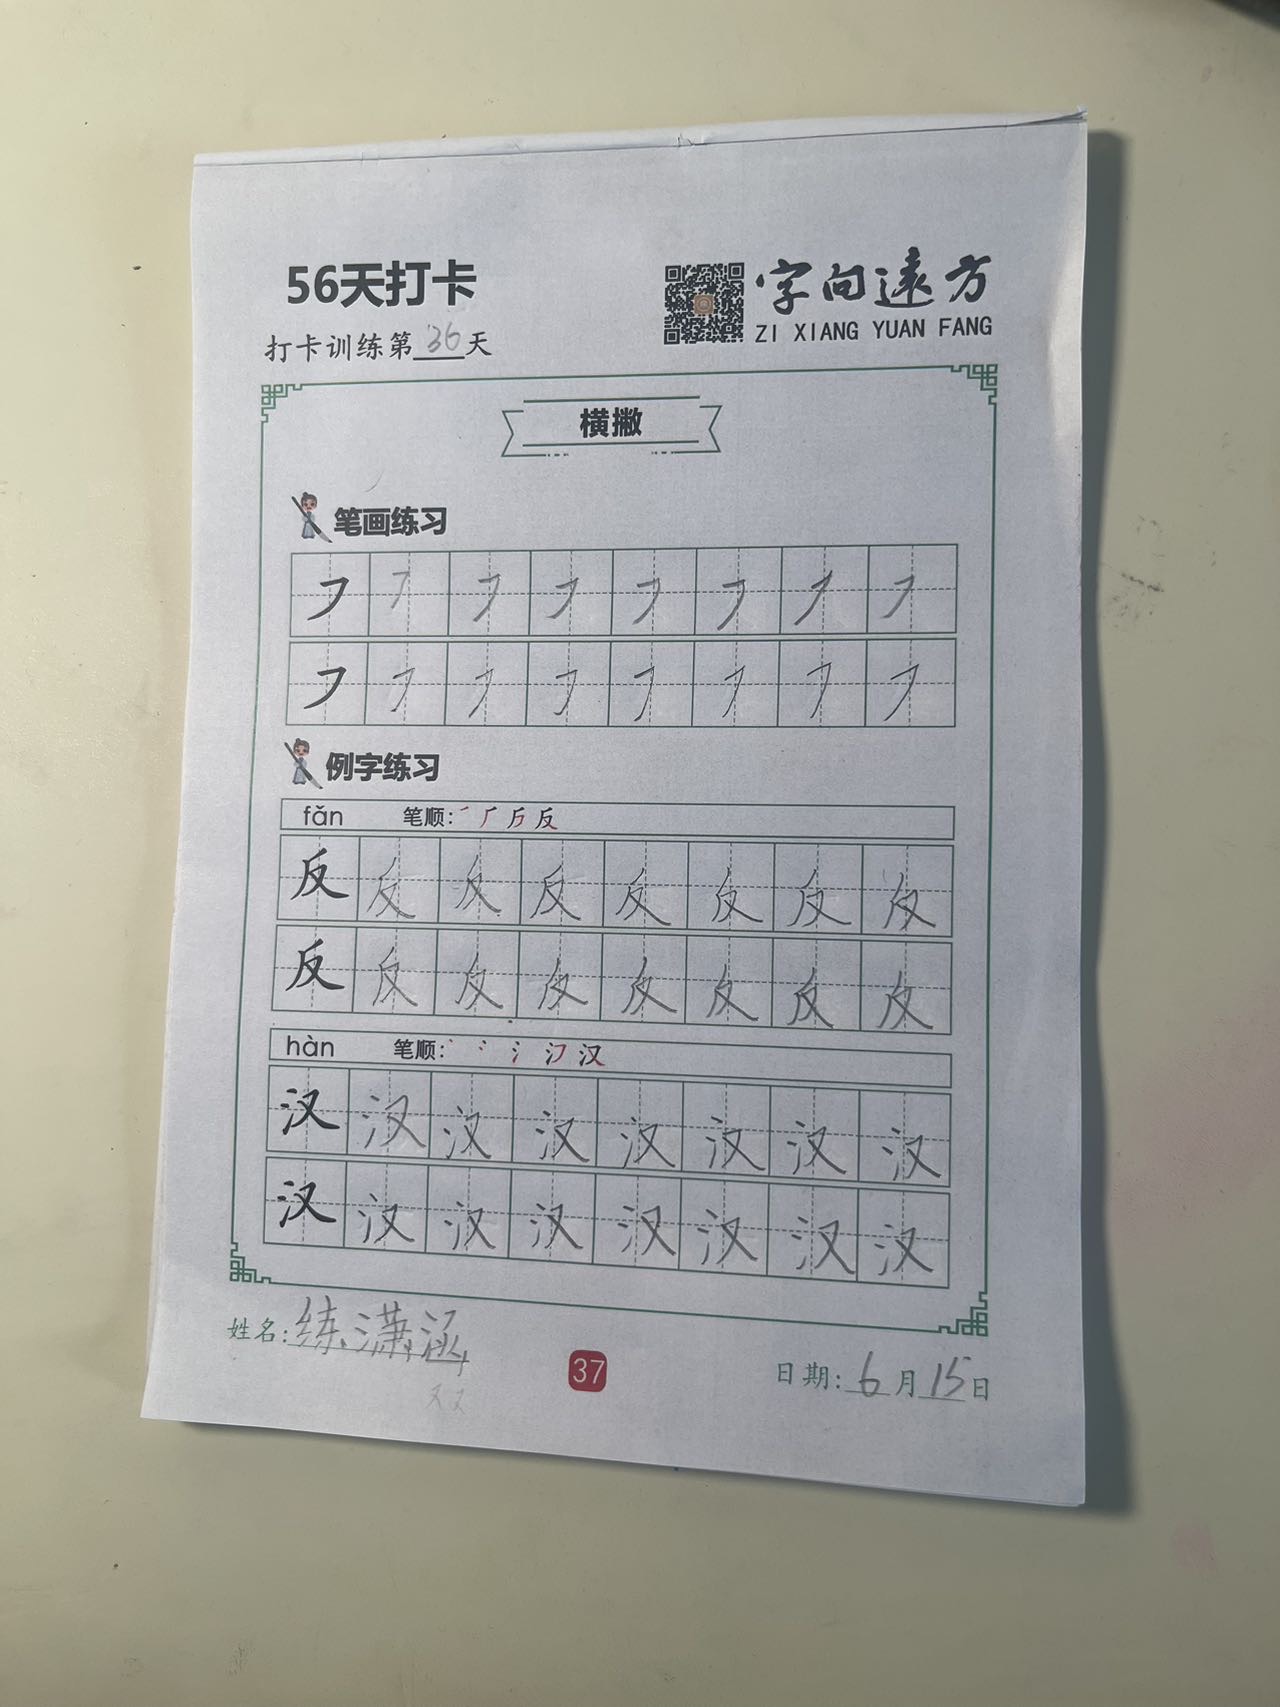 56天打卡
字向遠方
ZI XIANG YUAN FANG
打卡训练第36天
横撇
笔画练习
㇇ ㇇ ㇇ ㇇ ㇇ ㇇ ㇇ ㇇
㇇ ㇇ ㇇ ㇇ ㇇ ㇇ ㇇ ㇇
例字练习
fǎn 笔顺: 反
反 反 反 反 反 反 反 反
反 反 反 反 反 反 反 反
hàn 笔顺: 汉
汉 汉 汉 汉 汉 汉 汉 汉
汉 汉 汉 汉 汉 汉 汉 汉
姓名:练潇涵
37
日期:6月15日